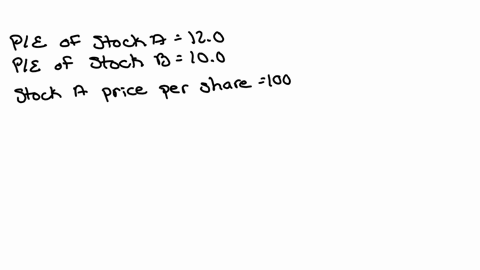 P/E of Stock A = 12.0
P/E of Stock B = 10.0
Stock A price per share = 100